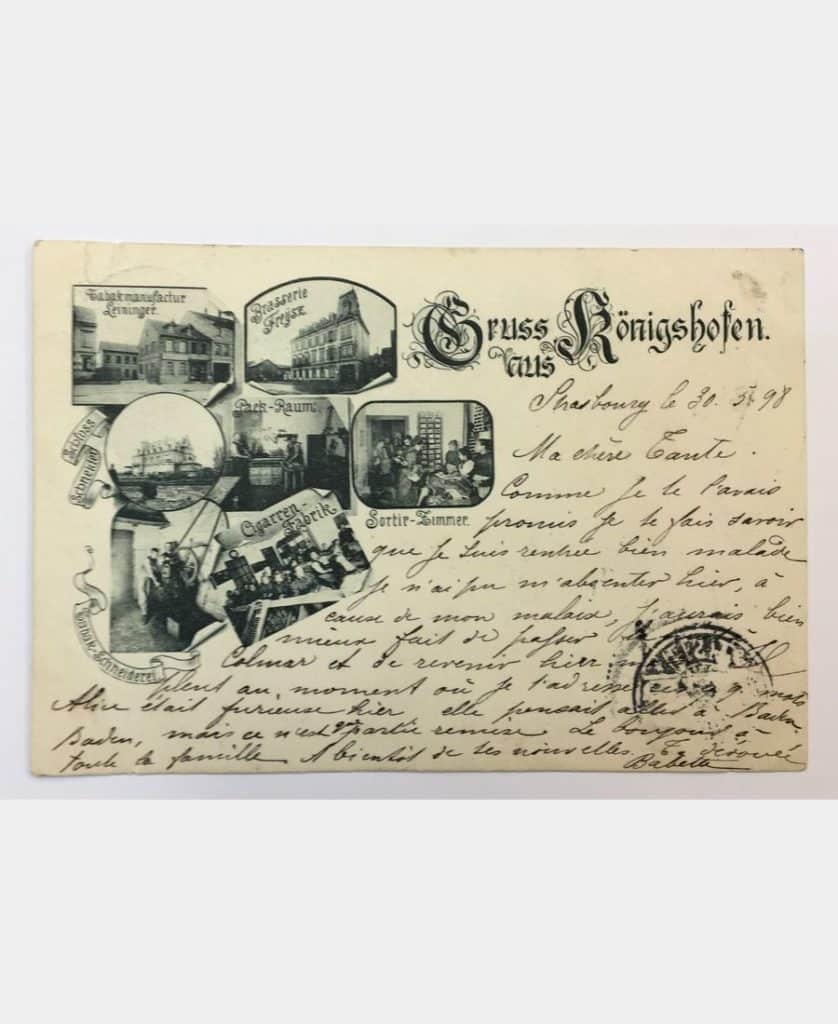 Tabakmanufactur
Leininger.
Brasserie
Freysz.
Gruss
aus
Königshofen.
Schloss
Schneider
Pack-Raum.
Sortir-Zimmer.
Cigarren-
Fabrik
Tabak-Schneiderei
Strasbourg le 30. 5. 98
Ma chère Tante.
Comme je te l'avais
promis je te fais savoir
que je suis rentrée bien malade
je n'ai pu m'absenter hier, à
cause de mon malaise, j'aurais bien
mieux fait de passer
Colmar et de revenir hier Il
pleut au moment où je t'adresse ces q. mots
Alice était furieuse hier elle pensait aller à Baden-
Baden, mais ce n'est que partie remise. Le bonjour à
toute la famille. A bientôt de tes nouvelles. Ta dévouée
Babette